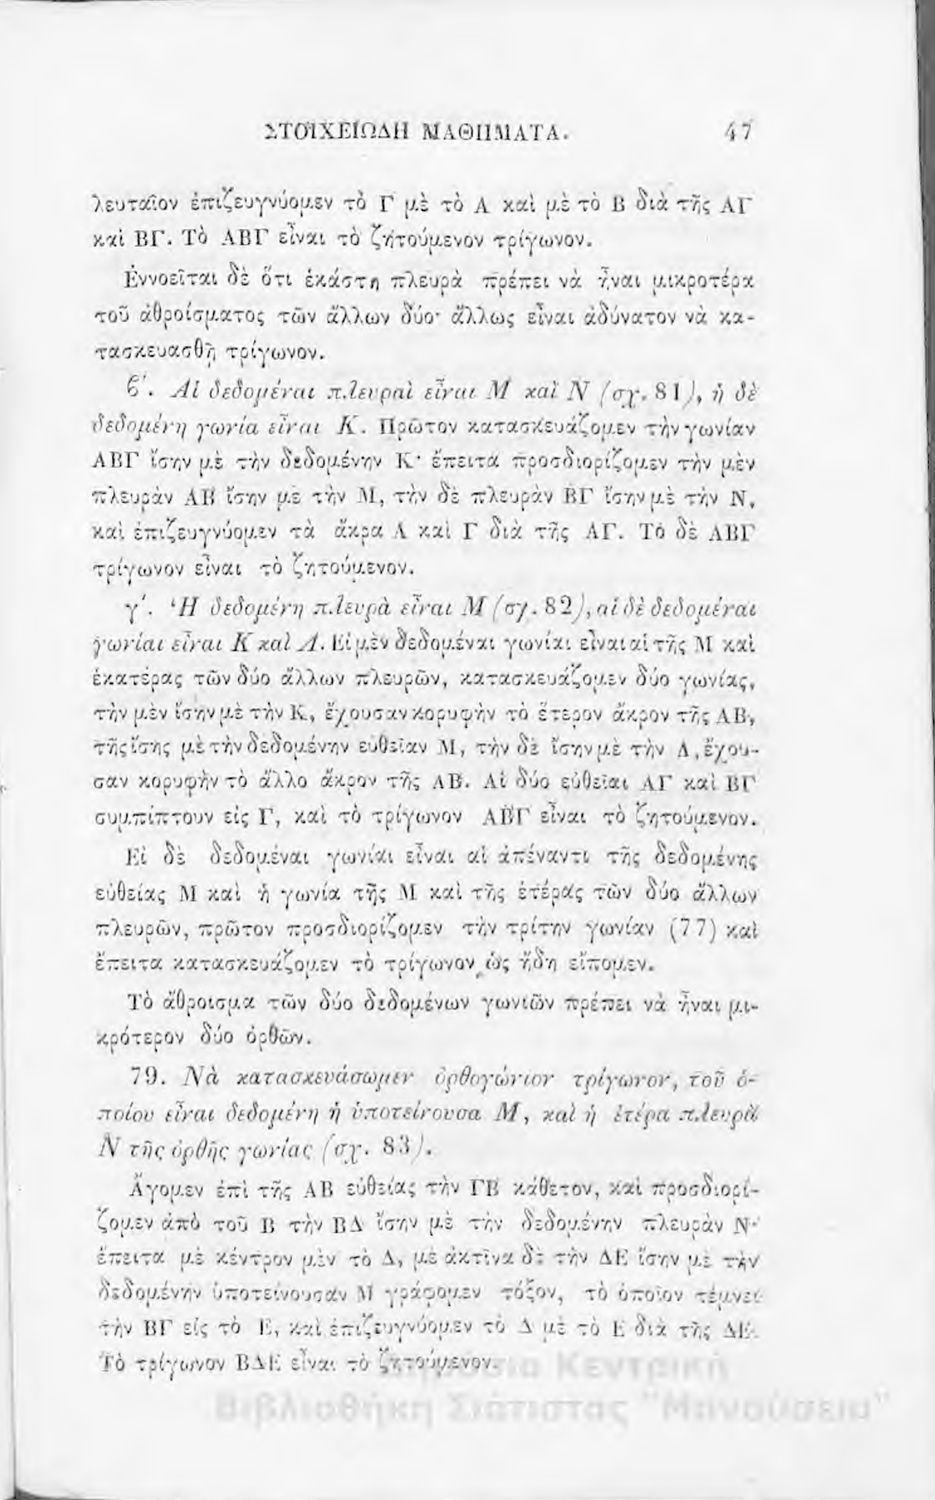 ΣΤΟΙΧΕΙΩΔΗ ΜΑΘΗΜΑΤΑ. 47
λευταῖον ἐπιζευγνύομεν τὸ Γ μὲ τὸ Α καὶ μὲ τὸ Β διὰ τῆς ΑΓ
καὶ ΒΓ. Τὸ ΑΒΓ εἶναι τὸ ζητούμενον τρίγωνον.
Ἐννοεῖται δὲ ὅτι ἑκάστη πλευρὰ πρέπει νὰ ἦναι μικροτέρα
τοῦ ἀθροίσματος τῶν ἄλλων δύο· ἄλλως εἶναι ἀδύνατον νὰ κα-
τασκευασθῇ τρίγωνον.
ϐ΄. Αἱ δεδομέναι πλευραὶ εἶναι Μ καὶ Ν (σχ. 81), ἡ δὲ
δεδομένη γωνία εἶναι Κ. Πρῶτον κατασκευάζομεν τὴν γωνίαν
ΑΒΓ ἴσην μὲ τὴν δεδομένην Κ· ἔπειτα προσδιορίζομεν τὴν μὲν
πλευρὰν ΑΒ ἴσην μὲ τὴν Μ, τὴν δὲ πλευρὰν ΒΓ ἴσην μὲ τὴν Ν,
καὶ ἐπιζευγνύομεν τὰ ἄκρα Α καὶ Γ διὰ τῆς ΑΓ. Τὸ δὲ ΑΒΓ
τρίγωνον εἶναι τὸ ζητούμενον.
γ΄. Ἡ δεδομένη πλευρὰ εἶναι Μ (σχ. 82), αἱ δὲ δεδομέναι
γωνίαι εἶναι Κ καὶ Λ. Εἰ μὲν δεδομέναι γωνίαι εἶναι αἱ τῆς Μ καὶ
ἑκατέρας τῶν δύο ἄλλων πλευρῶν, κατασκευάζομεν δύο γωνίας,
τὴν μὲν ἴσην μὲ τὴν Κ, ἔχουσαν κορυφὴν τὸ ἕτερον ἄκρον τῆς ΑΒ,
τῆς ἴσης μὲ τὴν δεδομένην εὐθεῖαν Μ, τὴν δὲ ἴσην μὲ τὴν Λ, ἔχου-
σαν κορυφὴν τὸ ἄλλο ἄκρον τῆς ΑΒ. Αἱ δύο εὐθεῖαι ΑΓ καὶ ΒΓ
συμπίπτουν εἰς Γ, καὶ τὸ τρίγωνον ΑΒΓ εἶναι τὸ ζητούμενον.
Εἰ δὲ δεδομέναι γωνίαι εἶναι αἱ ἀπέναντι τῆς δεδομένης
εὐθείας Μ καὶ ἡ γωνία τῆς Μ καὶ τῆς ἑτέρας τῶν δύο ἄλλων
πλευρῶν, πρῶτον προσδιορίζομεν τὴν τρίτην γωνίαν (77) καὶ
ἔπειτα κατασκευάζομεν τὸ τρίγωνον, ὡς ἤδη εἴπομεν.
Τὸ ἄθροισμα τῶν δύο δεδομένων γωνιῶν πρέπει νὰ ἦναι μι-
κρότερον δύο ὀρθῶν.
79. Νὰ κατασκευάσωμεν ὀρθογώνιον τρίγωνον, τοῦ ὁ-
ποίου εἶναι δεδομένη ἡ ὑποτείνουσα Μ, καὶ ἡ ἑτέρα πλευρὰ
Ν τῆς ὀρθῆς γωνίας (σχ. 83).
Ἄγομεν ἐπὶ τῆς ΑΒ εὐθείας τὴν ΓΒ κάθετον, καὶ προσδιορί-
ζομεν ἀπὸ τοῦ Β τὴν ΒΔ ἴσην μὲ τὴν δεδομένην πλευρὰν Ν·
ἔπειτα μὲ κέντρον μὲν τὸ Δ, μὲ ἀκτῖνα δὲ τὴν ΔΕ ἴσην μὲ τὴν
δεδομένην ὑποτείνουσαν Μ γράφομεν τόξον, τὸ ὁποῖον τέμνει
τὴν ΒΓ εἰς τὸ Ε, καὶ ἐπιζευγνύομεν τὸ Δ μὲ τὸ Ε διὰ τῆς ΔΕ.
Τὸ τρίγωνον ΒΔΕ εἶναι τὸ ζητούμενον.
Δημόσια Κεντρική
Βιβλιοθήκη Σιάτιστας "Μανούσεια"